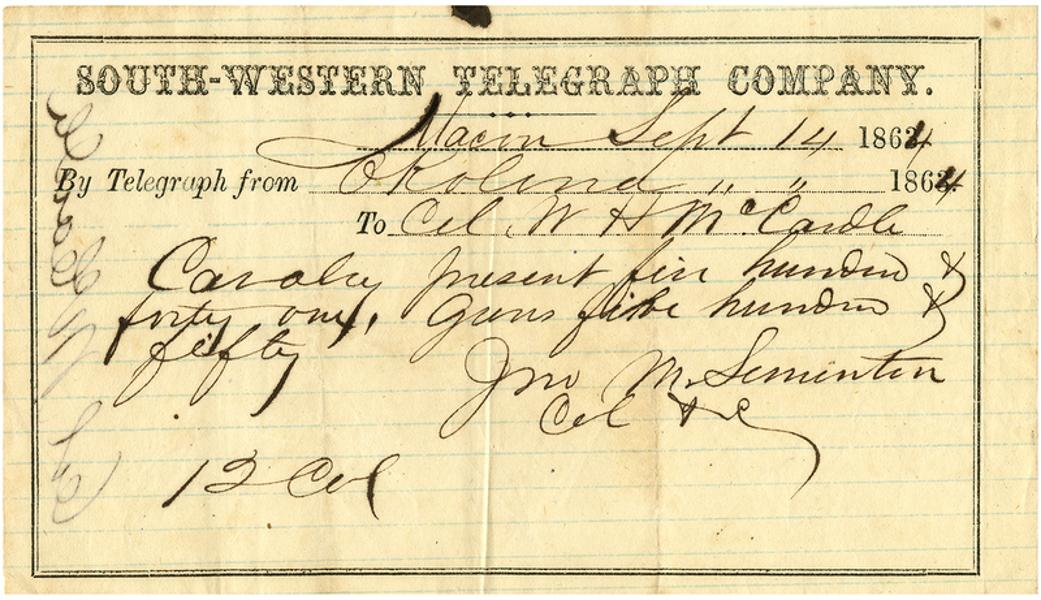 SOUTH-WESTERN TELEGRAPH COMPANY.
Macon Sept 14 1864
By Telegraph from Okolona " " 1864
To Col. W H McCardle
Cavalry present five hundred &
forty one, Guns five hundred &
fifty
Jno M. Simonton
Col &c
12 Col